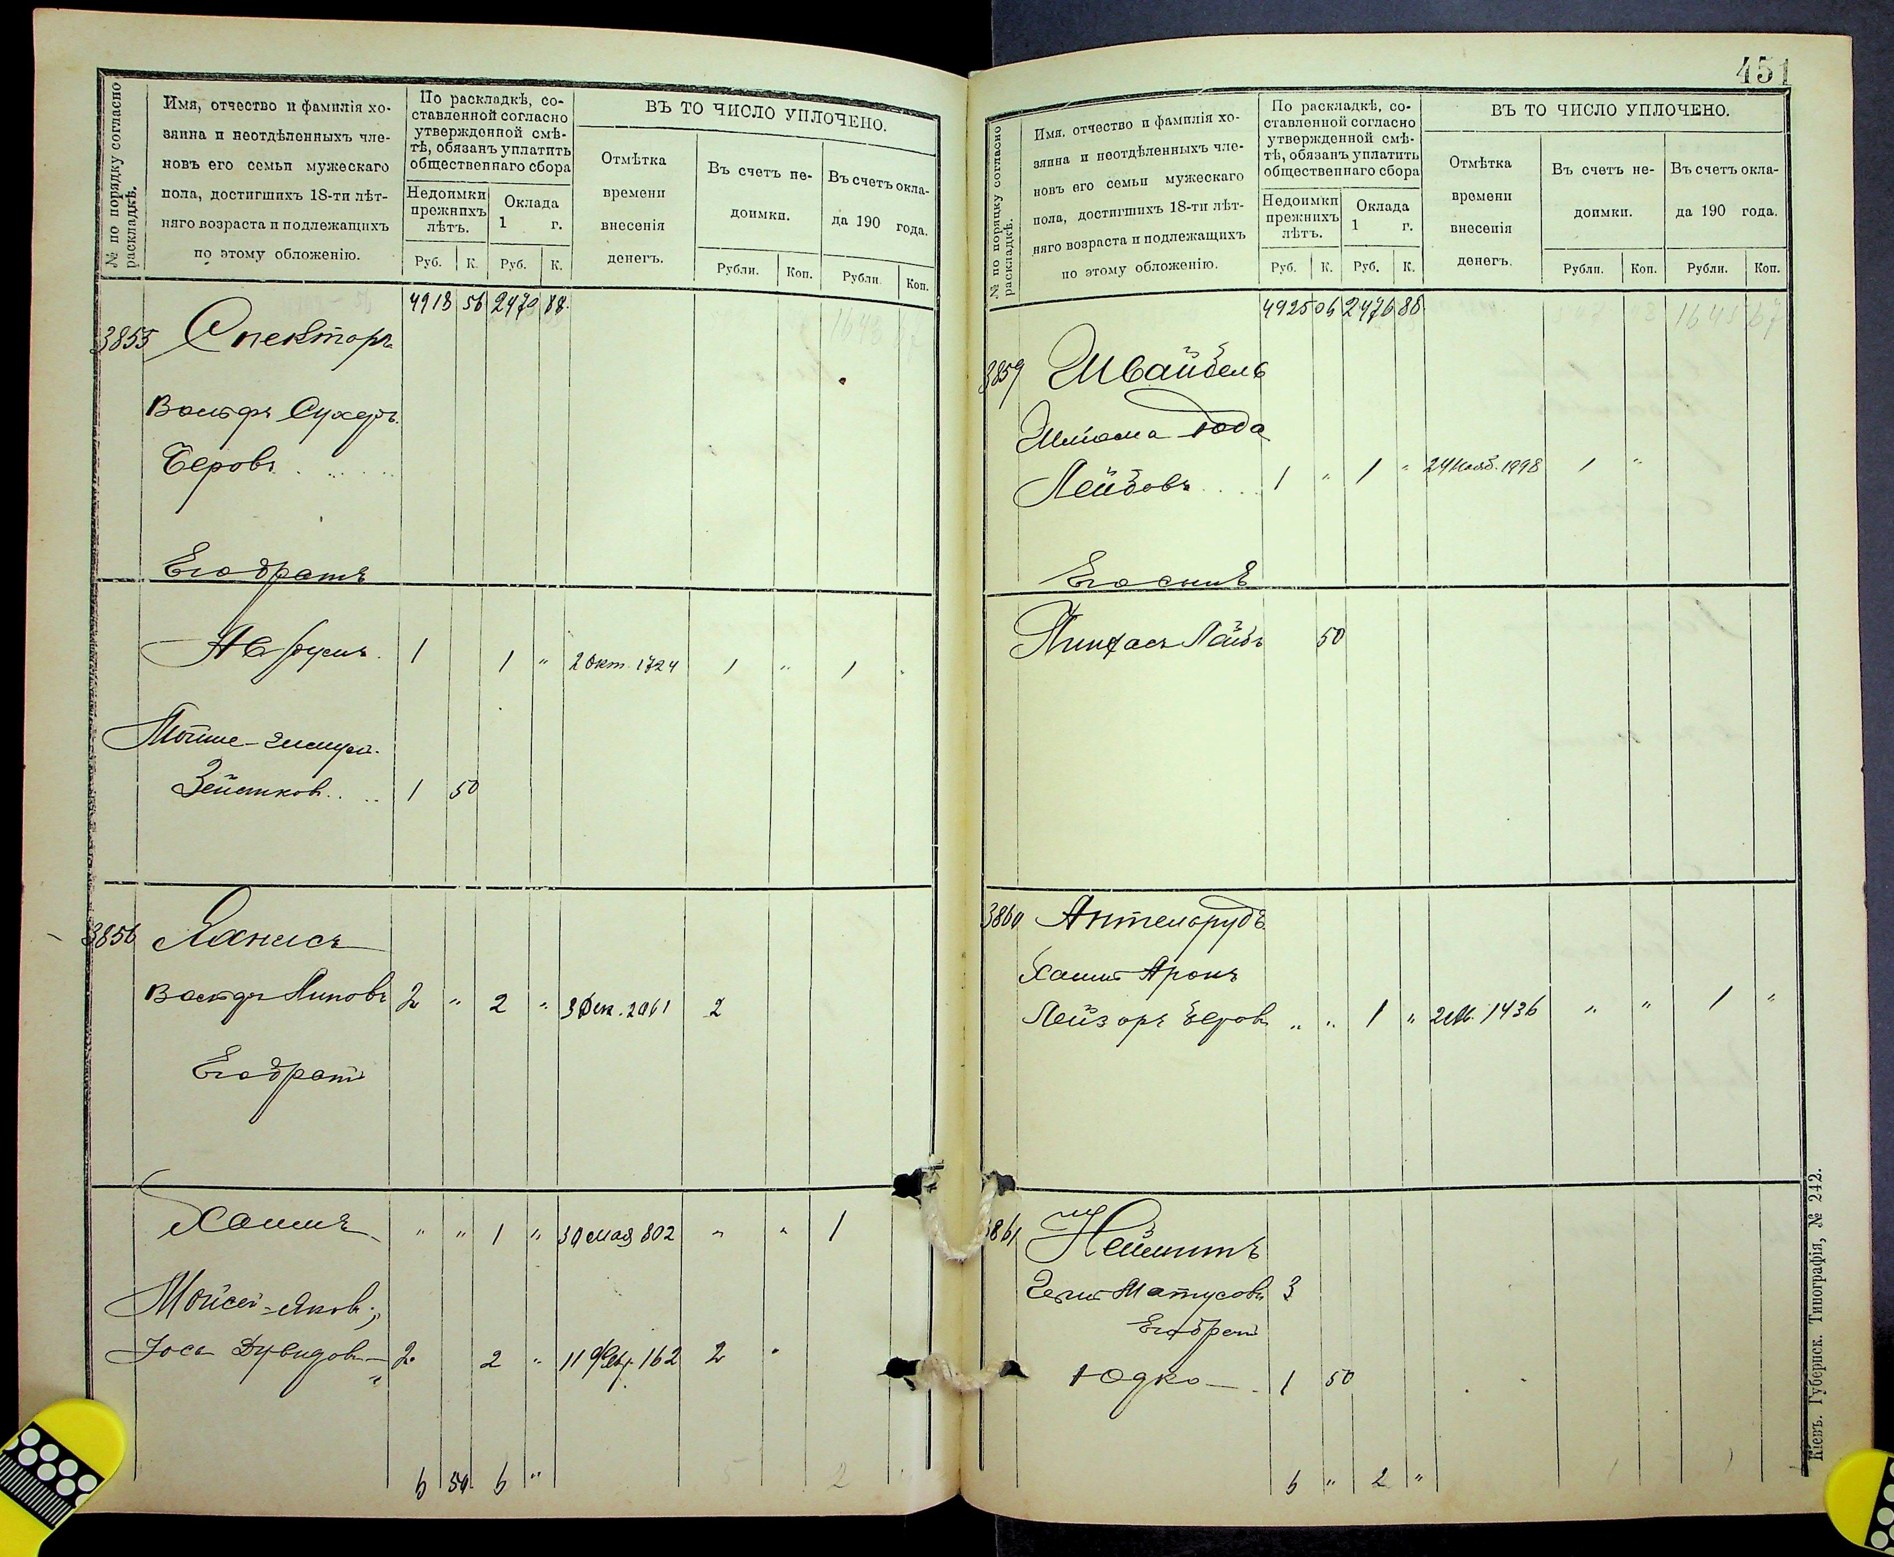 № по порядку согласно раскладкѣ.
Имя, отчество и фамилія хо-
зяина и неотдѣленныхъ чле-
новъ его семьи мужескаго
пола, достигшихъ 18-ти лѣт-
няго возраста и подлежащихъ
по этому обложенію.
По раскладкѣ, со-
ставленной согласно
утвержденной смѣ-
тѣ, обязанъ уплатить
общественнаго сбора
Недоимки
прежнихъ
лѣтъ.
Оклада
1 г.
Руб. К. Руб. К.
ВЪ ТО ЧИСЛО УПЛОЧЕНО.
Отмѣтка
времени
внесенія
денегъ.
Въ счетъ не-
доимки.
Рубли. Коп.
Въ счетъ окла-
да 190 года.
Рубли. Коп.
4918 56 2470 88
3855 Спекторъ
Вольфъ Сухеръ
Беровъ
Его братъ
1 1 " 2 Окт. 1724 1 " 1
1 50
3856
2 " 2 " 3 Дек. 2061 2
Его братъ
Хаимъ " " 1 " 30 мая 802 " " 1
Мойсей-Яков;
Йось Дувидов 2 2 " 11 Февр. 162 2 "
6 50 6 "
5 2
451
№ по порядку согласно раскладкѣ.
Имя, отчество и фамилія хо-
зяина и неотдѣленныхъ чле-
новъ его семьи мужескаго
пола, достигшихъ 18-ти лѣт-
няго возраста и подлежащихъ
по этому обложенію.
По раскладкѣ, со-
ставленной согласно
утвержденной смѣ-
тѣ, обязанъ уплатить
общественнаго сбора
Недоимки
прежнихъ
лѣтъ.
Оклада
1 г.
Руб. К. Руб. К.
ВЪ ТО ЧИСЛО УПЛОЧЕНО.
Отмѣтка
времени
внесенія
денегъ.
Въ счетъ не-
доимки.
Рубли. Коп.
Въ счетъ окла-
да 190 года.
Рубли. Коп.
4925 06 2476 88 1645 67
3859 Швайбель
Шлиома
Лейбовъ 1 " 1 " 24 Нояб. 1998 1 "
Его сынъ
Пинхасъ Лейбъ 50
3860
Хаимъ Аронъ
Лейзоръ Беровъ " " 1 " 1436 " " 1 "
3861
Матусовъ 3
Его братъ
Юдко 1 50
6 " 2 "
Кіевъ. Губернск. Типографія, № 242.